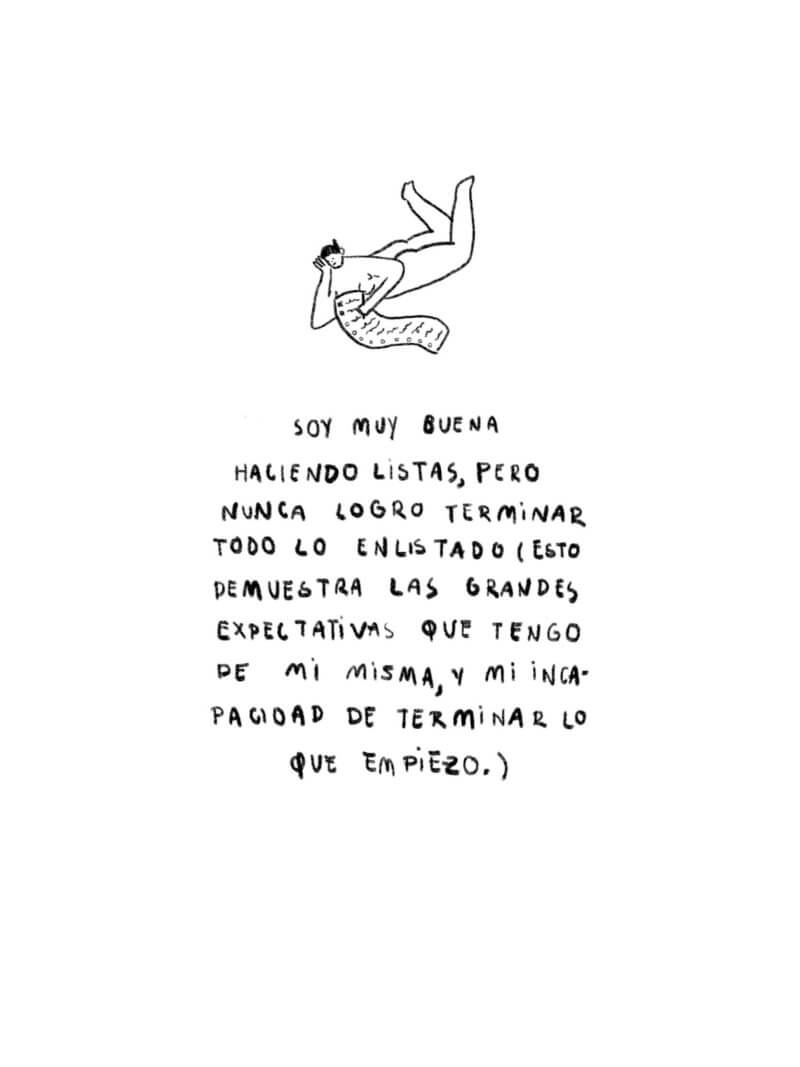 SOY MUY BUENA
HACIENDO LISTAS, PERO
NUNCA LOGRO TERMINAR
TODO LO ENLISTADO (ESTO
DEMUESTRA LAS GRANDES
EXPECTATIVAS QUE TENGO
DE MI MISMA, Y MI INCA-
PACIDAD DE TERMINAR LO
QUE EMPIEZO.)